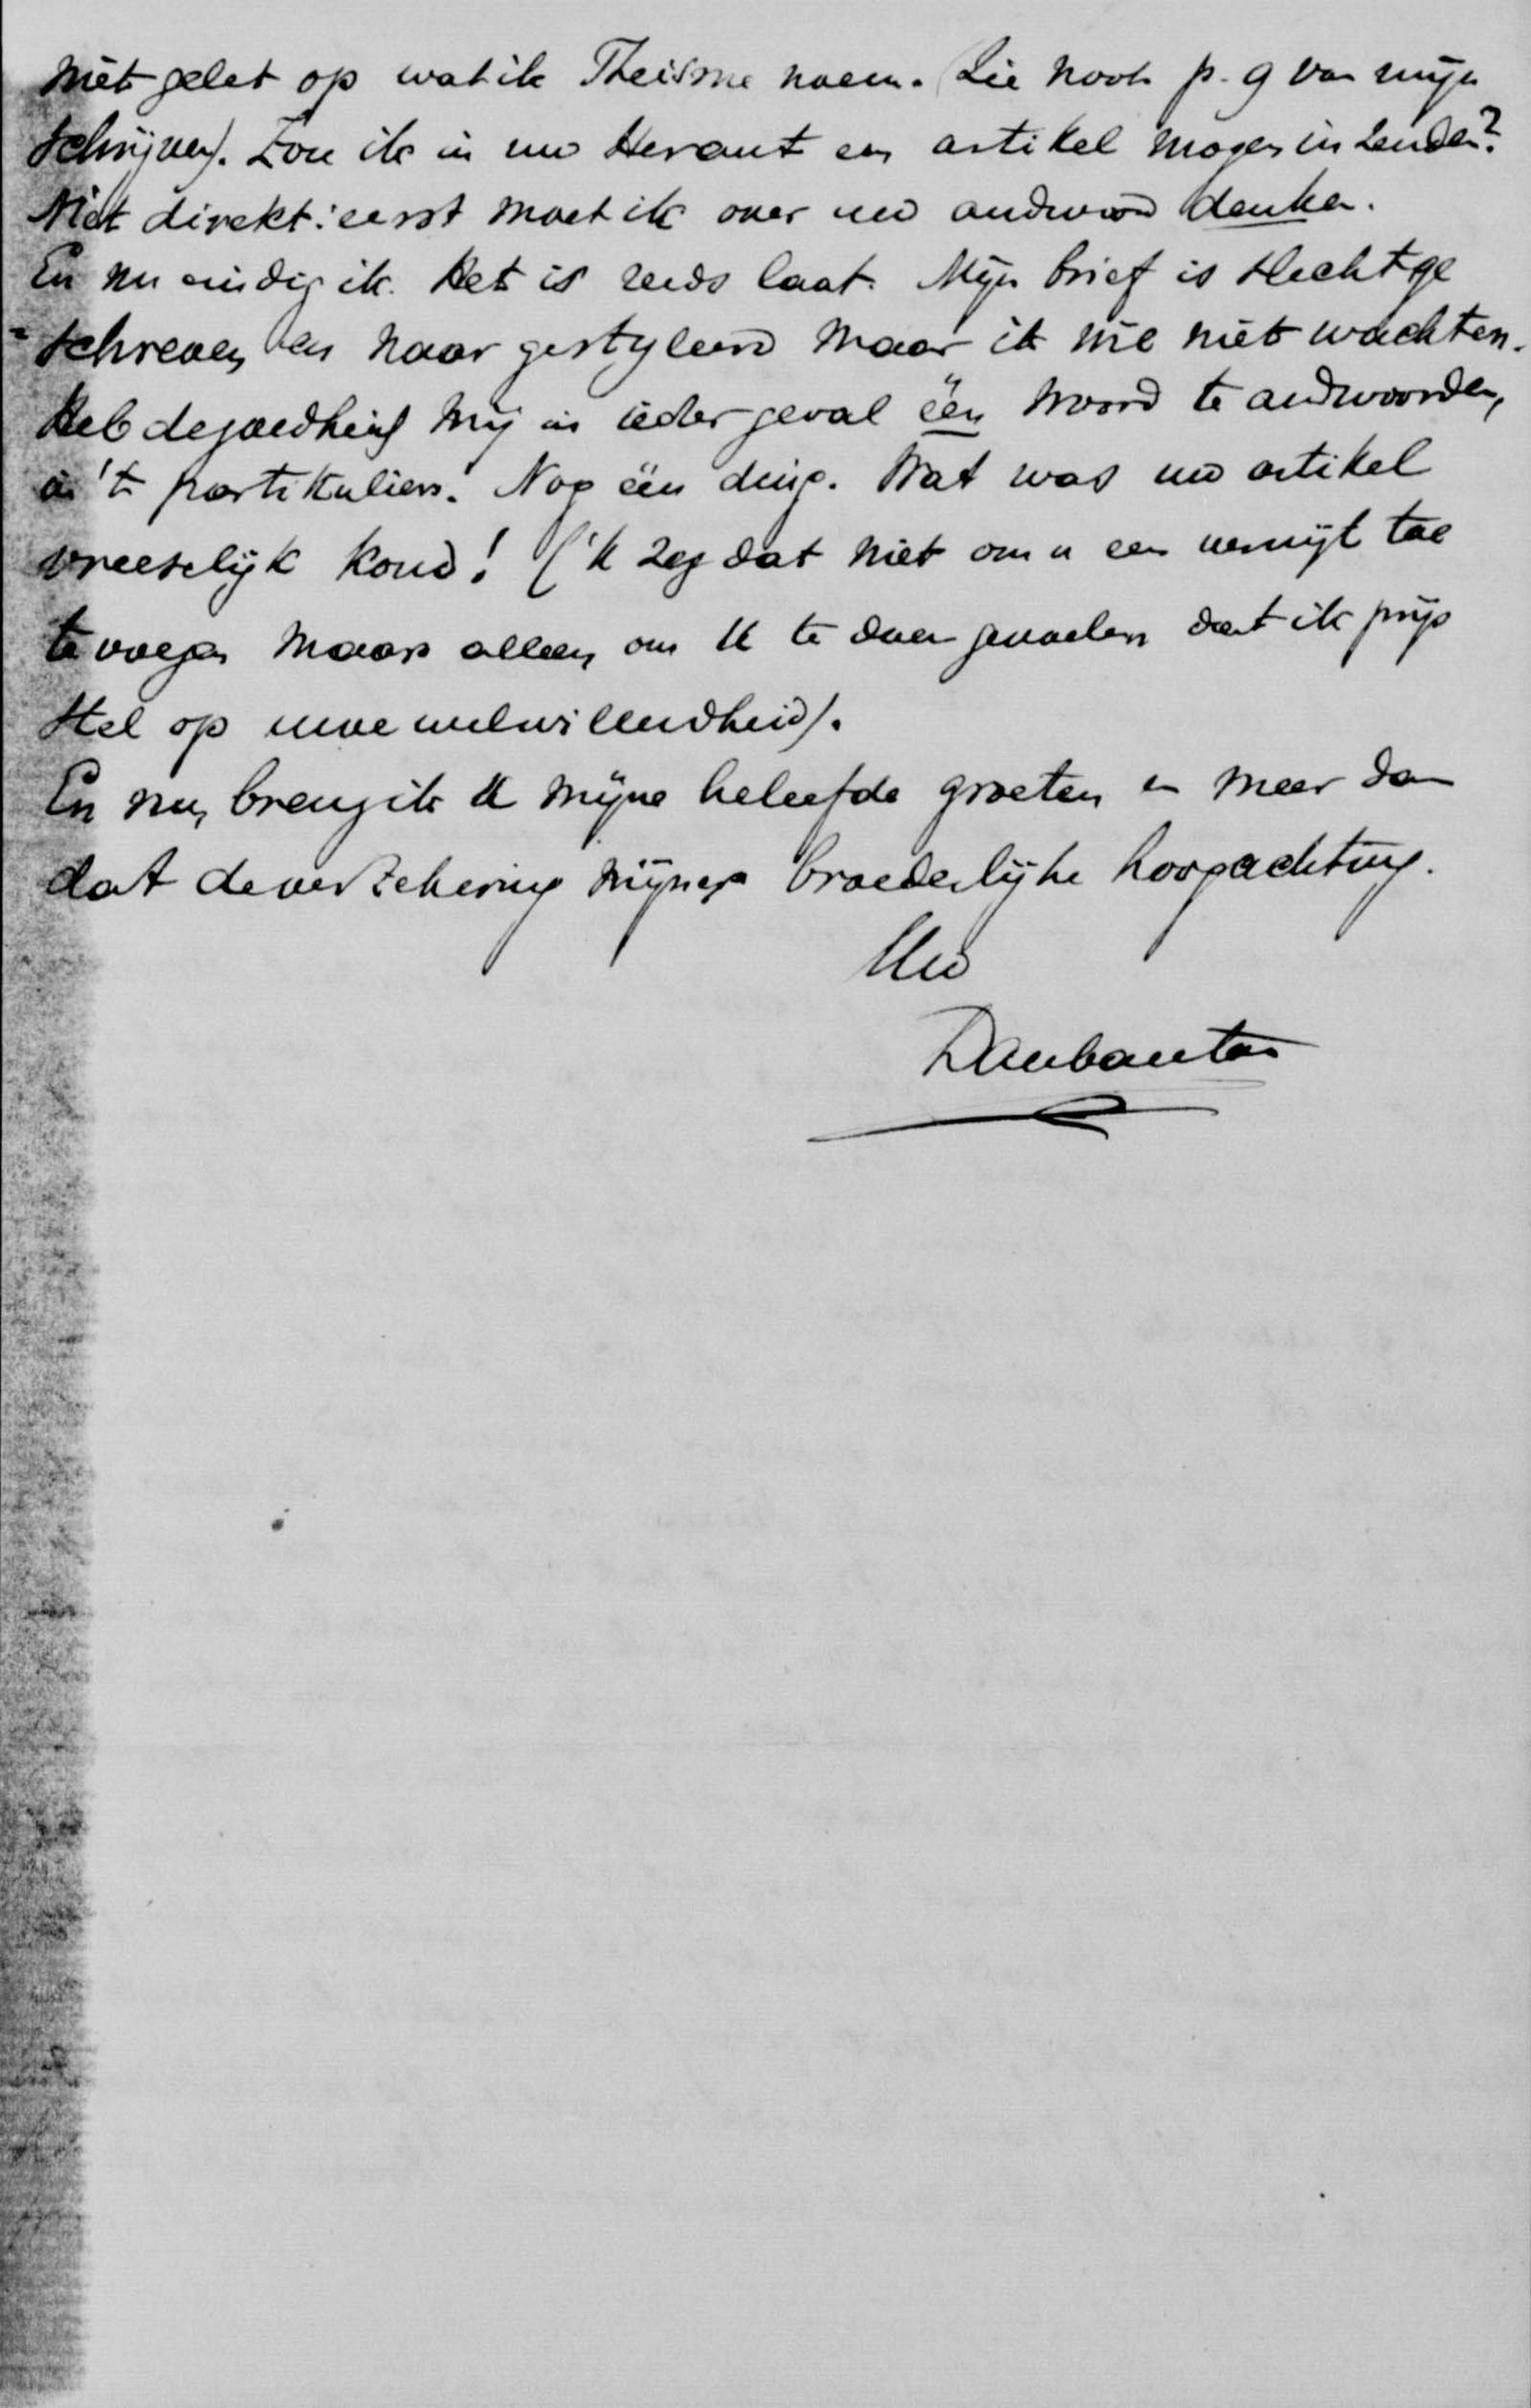 niet gelet op wat ik Theisme noem. (Zie noot p. 9 van mijn
schrijven). Zou ik in uw Heraut een artikel mogen inzenden?
Niet direkt: eerst moet ik over uw andwoord denken.
En nu eindig ik. Het is reeds laat. Mijn brief is slecht ge
=schreven en naar gestyleerd maar ik wil niet wachten.
Heb de goedheid mij in ieder geval één woord te andwoorden,
in 't partikulier. Nog één ding. Wat was uw artikel
vreeselijk koud! ('k zeg dat niet om u een verwijt toe
te voegen maar alleen om U te doen gevoelen dat ik prijs
stel op uwe welwillendheid).
En nu, breng ik U mijne beleefde groeten en meer dan
dat de verzekering mijner broederlijke hoogachting.
Uw
Daubanton